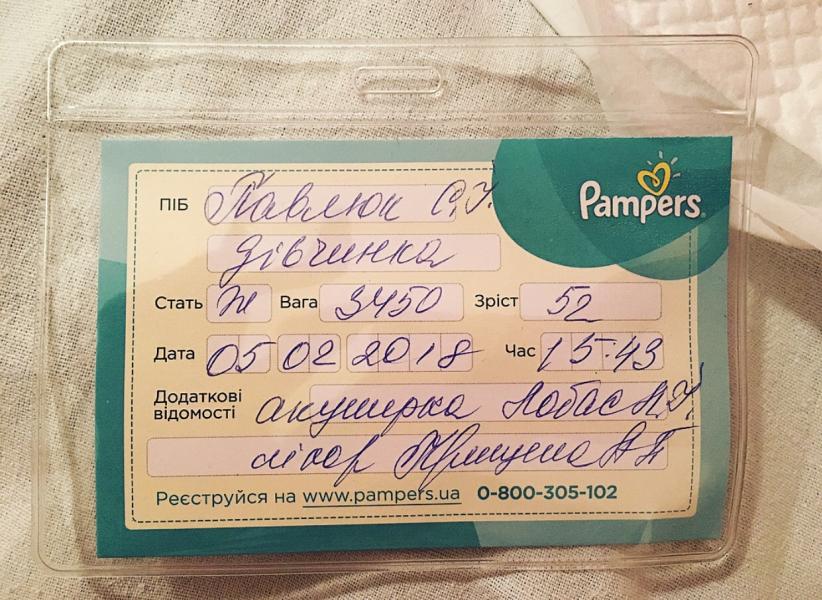 Pampers
ПІБ Павлюк С.У.
дівчинка
Стать Ж Вага 3450 Зріст 52
Дата 05 02 2018 Час 15:43
Додаткові відомості акушерка Лобас Н.У.
лікар А П
Реєструйся на www.pampers.ua 0-800-305-102